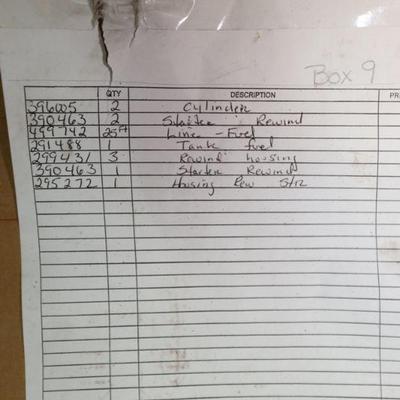 Box 9
QTY DESCRIPTION PR
396005 2 Cylinder
390463 2 Starter Rewind
499742 25 ft Line - Fuel
291488 1 Tank fuel
299431 3 Rewind housing
390463 1 Starter Rewind
295272 1 Housing Rew S/12